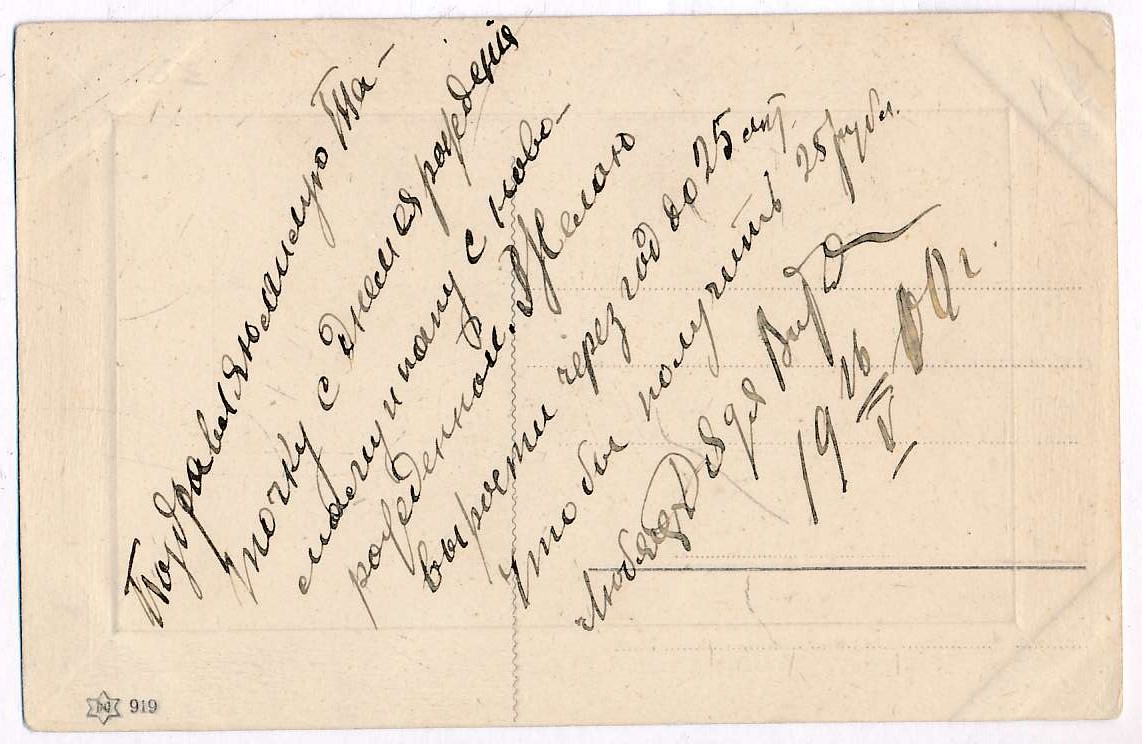 Поздравляю милую Та-
точку с Днем ея рожденiя
маму и папу с ново-
рожденной. Желаю
вырости через год до 25 лѣт
что бы получить 25 рубл.
Любящ Дядя
19 16/V г.
919